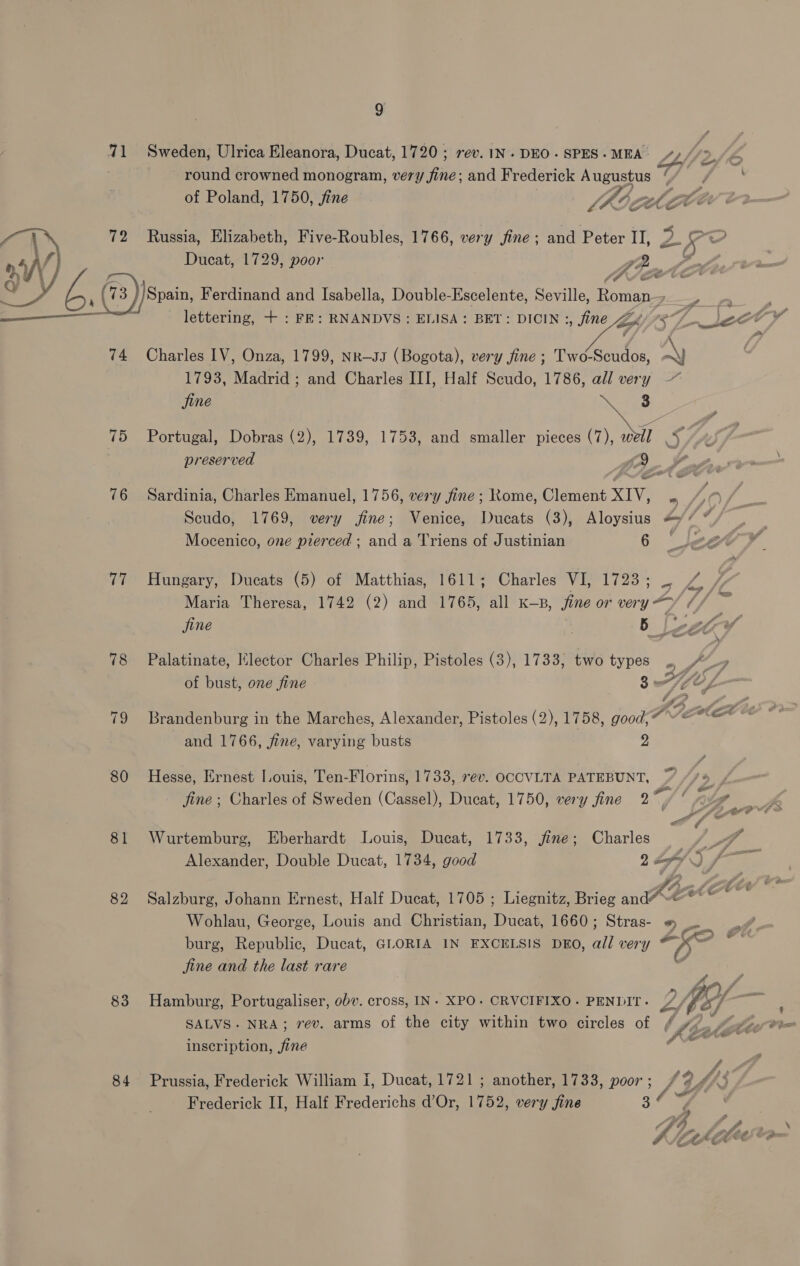 9
71 Sweden, Ulrica Eleanora, Ducat, 1720 ; rev. IN · DEO · SPES · MEA
round crowned monogram, very fine; and Frederick Augustus
of Poland, 1750, fine
72 Russia, Elizabeth, Five-Roubles, 1766, very fine; and Peter II,
Ducat, 1729, poor 2
73 Spain, Ferdinand and Isabella, Double-Escelente, Seville, Roman
lettering, + : FE : RNANDVS : ELISA : BET : DICIN :, fine
74 Charles IV, Onza, 1799, NR–JJ (Bogota), very fine ; Two-Scudos,
1793, Madrid ; and Charles III, Half Scudo, 1786, all very
fine 3
75 Portugal, Dobras (2), 1739, 1753, and smaller pieces (7), well
preserved 9
76 Sardinia, Charles Emanuel, 1756, very fine ; Rome, Clement XIV,
Scudo, 1769, very fine; Venice, Ducats (3), Aloysius
Mocenico, one pierced ; and a Triens of Justinian 6
77 Hungary, Ducats (5) of Matthias, 1611; Charles VI, 1723 ;
Maria Theresa, 1742 (2) and 1765, all K–B, fine or very
fine 5
78 Palatinate, Elector Charles Philip, Pistoles (3), 1733, two types
of bust, one fine 3
79 Brandenburg in the Marches, Alexander, Pistoles (2), 1758, good,
and 1766, fine, varying busts 2
80 Hesse, Ernest Louis, Ten-Florins, 1733, rev. OCCVLTA PATEBUNT,
fine ; Charles of Sweden (Cassel), Ducat, 1750, very fine 2
81 Wurtemburg, Eberhardt Louis, Ducat, 1733, fine; Charles
Alexander, Double Ducat, 1734, good 2
82 Salzburg, Johann Ernest, Half Ducat, 1705 ; Liegnitz, Brieg and
Wohlau, George, Louis and Christian, Ducat, 1660 ; Stras-
burg, Republic, Ducat, GLORIA IN EXCELSIS DEO, all very
fine and the last rare
83 Hamburg, Portugaliser, obv. cross, IN · XPO · CRVCIFIXO · PENDIT ·
SALVS · NRA ; rev. arms of the city within two circles of
inscription, fine
84 Prussia, Frederick William I, Ducat, 1721 ; another, 1733, poor ;
Frederick II, Half Frederichs d'Or, 1752, very fine 3